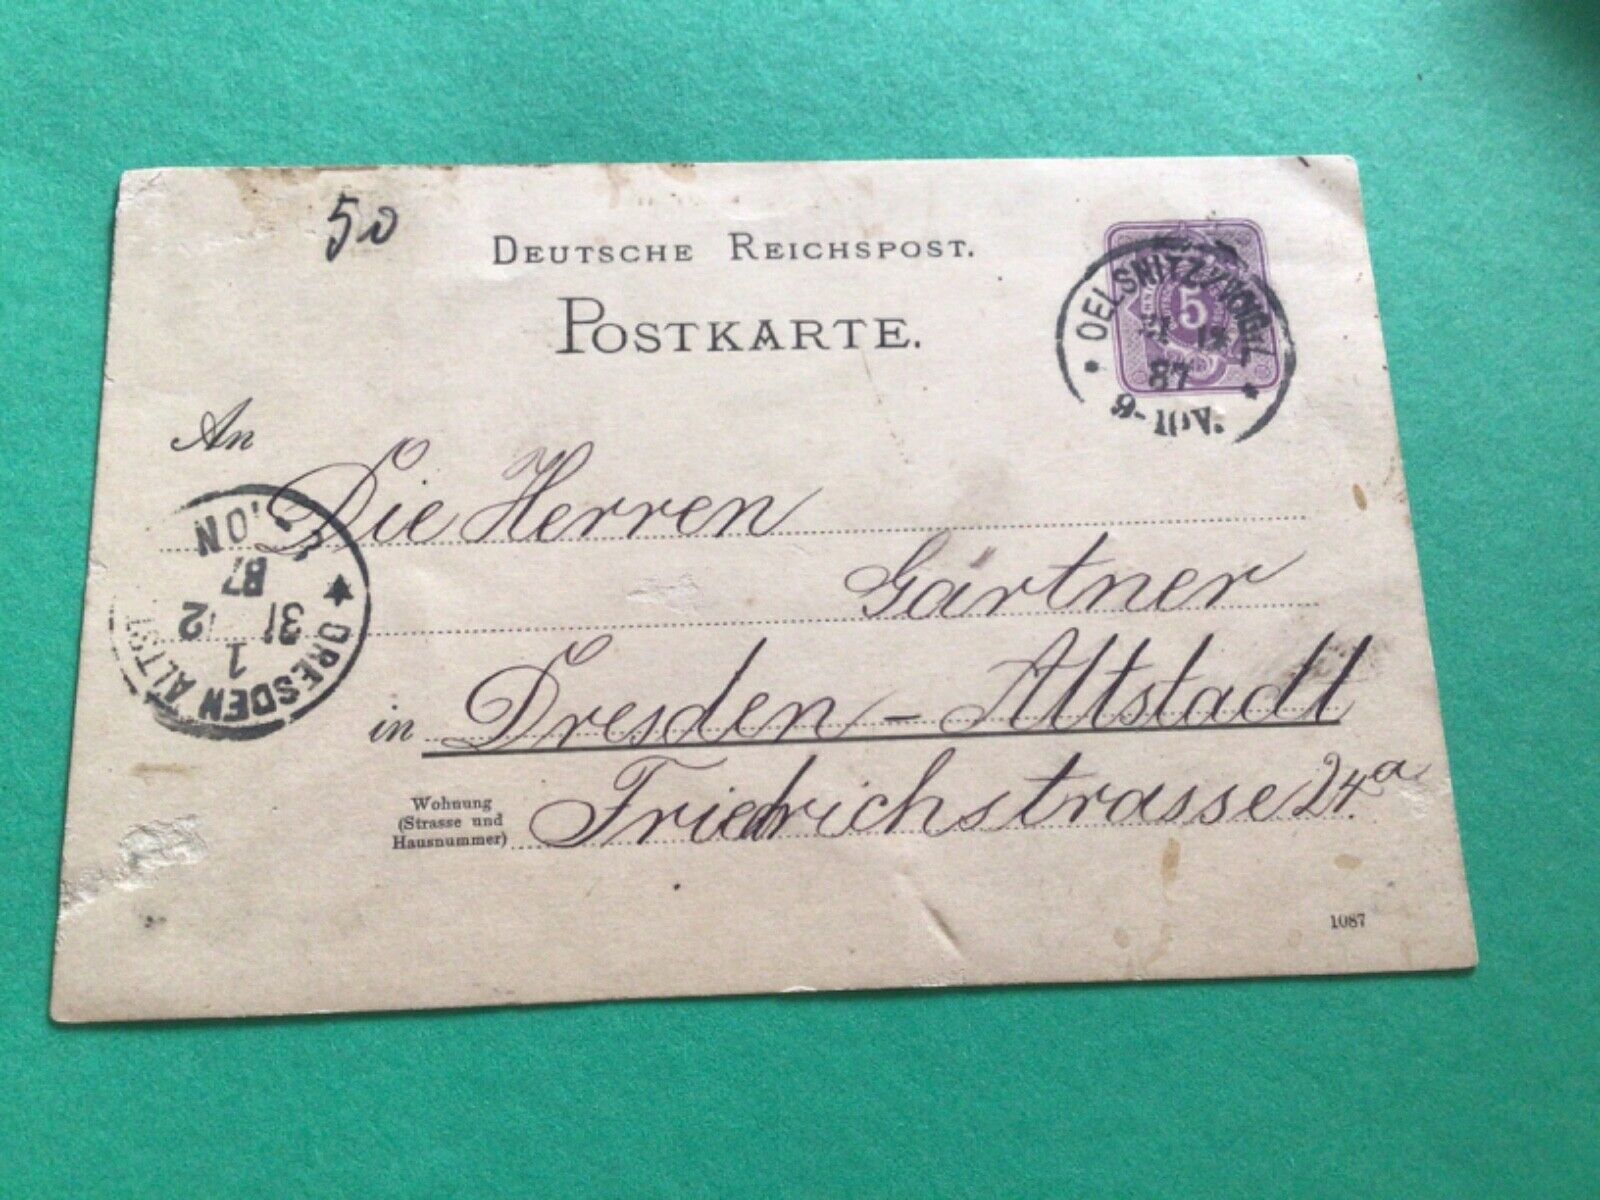 50
DEUTSCHE REICHSPOST.
POSTKARTE.
5
* OELSNITZ i/VOIGTL *
31 12
87
9-10V.
An Die Herren
Gärtner
in Dresden-Altstadt
Wohnung
(Strasse und
Hausnummer)
Friedrichstrasse 24a.
★ DRESDEN ALTST.
1
31 12
87
ON
1087